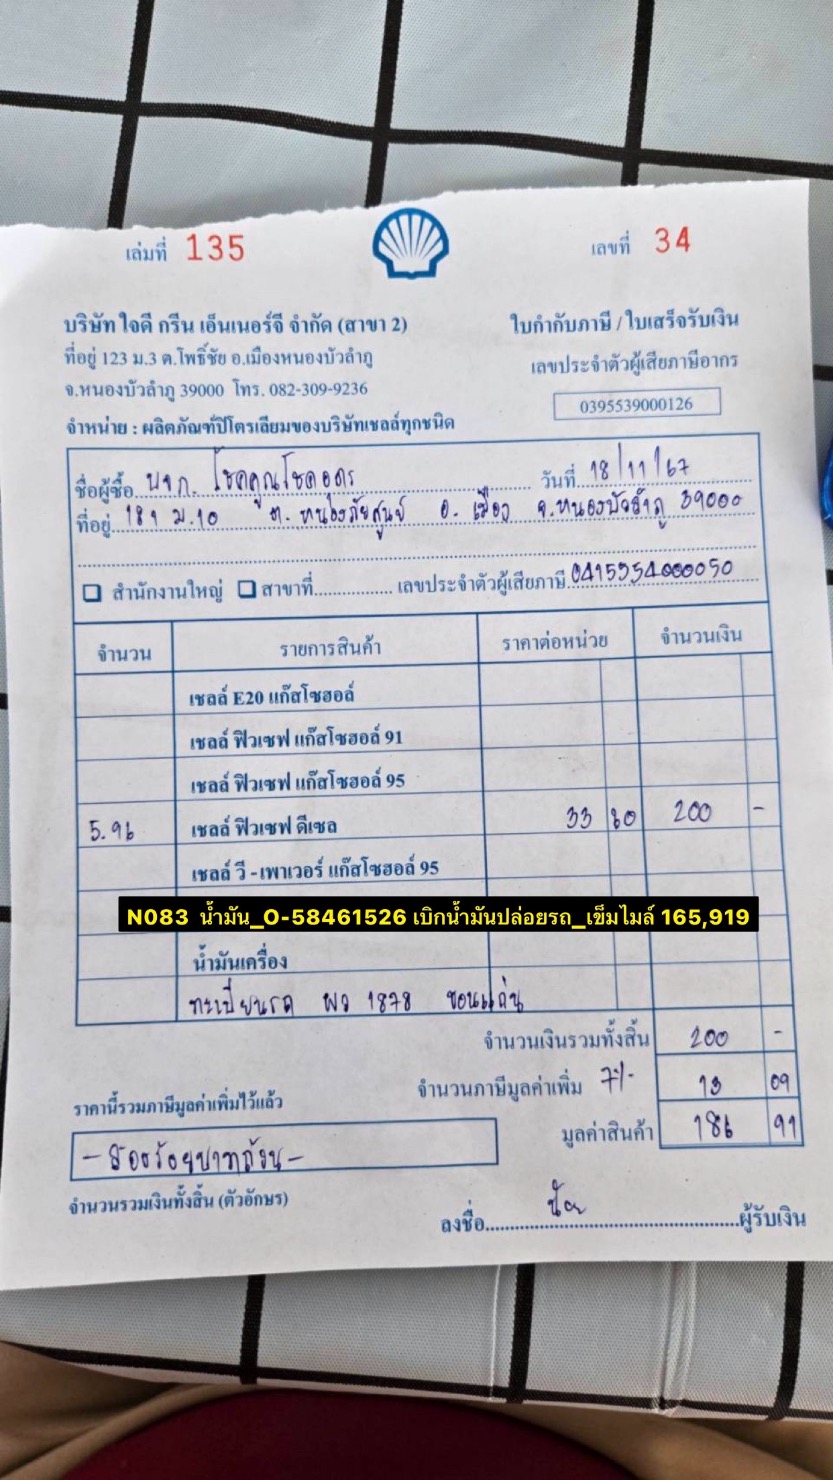 เล่มที่ 135
เลขที่ 34
บริษัท ใจดี กรีน เอ็นเนอร์จี จำกัด (สาขา 2)
ใบกำกับภาษี / ใบเสร็จรับเงิน
ที่อยู่ 123 ม.3 ต.โพธิ์ชัย อ.เมืองหนองบัวลำภู
เลขประจำตัวผู้เสียภาษีอากร
จ.หนองบัวลำภู 39000 โทร. 082-309-9236
0395539000126
จำหน่าย : ผลิตภัณฑ์ปิโตรเลียมของบริษัทเชลล์ทุกชนิด
ชื่อผู้ซื้อ หจก. โชคคูณโชคอุดร วันที่ 18/11/67
ที่อยู่ 181 ม.10 ต. หนองภัยศูนย์ อ. เมือง จ.หนองบัวลำภู 39000
สำนักงานใหญ่ สาขาที่ เลขประจำตัวผู้เสียภาษี 0415554000050
จำนวน รายการสินค้า ราคาต่อหน่วย จำนวนเงิน
เชลล์ E20 แก๊สโซฮอล์
เชลล์ ฟิวเซฟ แก๊สโซฮอล์ 91
เชลล์ ฟิวเซฟ แก๊สโซฮอล์ 95
5.96 เชลล์ ฟิวเซฟ ดีเซล 33 60 200 -
เชลล์ วี - เพาเวอร์ แก๊สโซฮอล์ 95
N083 น้ำมัน_O-58461526 เบิกน้ำมันปล่อยรถ_เข็มไมล์ 165,919
น้ำมันเครื่อง
ทะเบียนรถ ผว 1878 ขอนแก่น
จำนวนเงินรวมทั้งสิ้น 200 -
จำนวนภาษีมูลค่าเพิ่ม 7% 13 09
ราคานี้รวมภาษีมูลค่าเพิ่มไว้แล้ว
มูลค่าสินค้า 186 91
- สองร้อยบาทถ้วน -
จำนวนรวมเงินทั้งสิ้น (ตัวอักษร)
ลงชื่อ น้อย ผู้รับเงิน